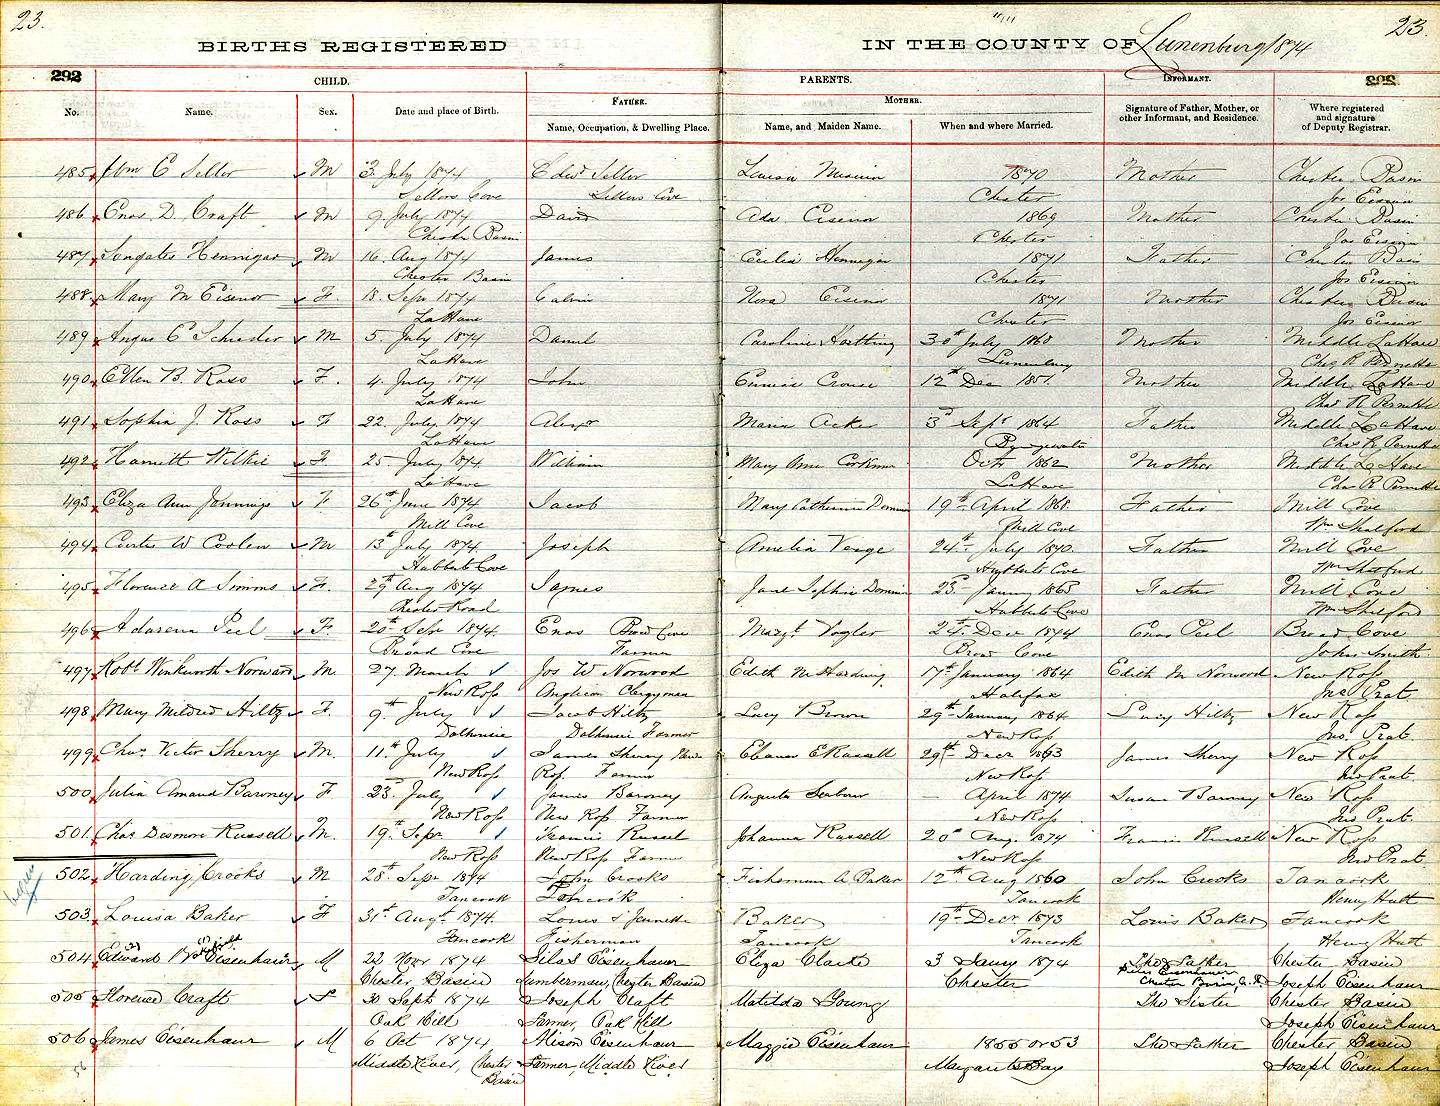 23.
23.
BIRTHS REGISTERED IN THE COUNTY OF Lunenburg 1874
292
292
CHILD. PARENTS. INFORMANT.
FATHER. MOTHER.
No. Name. Sex. Date and place of Birth. Name, Occupation, & Dwelling Place. Name, and Maiden Name. When and where Married. Signature of Father, Mother, or other Informant, and Residence. Where registered and signature of Deputy Registrar.
485 Wm E Sellor M 3. July 1874 Edwd Sellor Louisa 1870 Mother Chester Basin
Sellors Cove Sellors Cove Chester Jos Eisenor
486 Enos D. Craft M 9. July 1874 David Ada Eisenor 1869 Mother Chester Basin
Chester Basin Chester Jos Eisenor
487 Sungates Hennigar M 16. Aug 1874 James Cecilia Hennigar 1871 Father Chester Basin
Chester Basin Chester Jos Eisenor
488 Mary M Eisenor F. 18. Sepr 1874 Calvin Nora Eisenor 1871 Mother Chester Basin
LaHave Chester Jos Eisenor
489 Angus C Schrader M 5. July 1874 Daniel Caroline Hirtling 30th July 1868 Mother Middle LaHave
LaHave Lunenburg Chas R Pernette
490 Ellen B. Ross F. 4. July 1874 John Crouse 12th Dec 185 Mother Middle LaHave
LaHave Chas R Pernette
491 Sophia J. Ross F 22. July 1874 Alexr Maria Acker 3d Sepr 1864 Father Middle LaHave
LaHave Bridgewater Chas R Pernette
492 Harriett Wilkie F. 25. July 1874 William Mary Ann Corkum Octr 1862 Mother Middle LaHave
LaHave LaHave Chas R Pernette
493 Eliza Ann Jennings F 26th June 1874 Jacob Mary Catherine 19th April 1868 Father Mill Cove
Mill Cove Mill Cove Wm Shatford
494 Curtis W Coolen M 13th July 1874 Joseph Amelia Verge 24th July 1870. Father Mill Cove
Hubberts Cove Hubberts Cove Wm Shatford
495 Florence A Simms F. 29th Aug 1874 James Jane Sophia 23d 1865 Father Mill Cove
Chester Road Hubberts Cove Wm Shatford
496 Adarena Peel F. 20th Sepr 1874. Enos Broad Cove Margt Vogler 24th Decr 1874 Enos Peel Broad Cove
Broad Cove Farmer Broad Cove John Smith
497 Robt Winkworth Norwood M. 27. March Jos W Norwood Edith M Harding 17th January 1864 Edith M Norwood New Ross
New Ross Anglican Clergyman Halifax Jno Prat.
498 Mary Mildred Hiltz F. 9th July Jacob Hiltz Lucy Brown 29th January 1864 Lucy Hiltz New Ross
Dalhousie Dalhousie Farmer New Ross Jno. Prat.
499 Chas. Victor Sherry M. 11th July James Sherry New Eleanor E Russell 29th Decr 1863 James Sherry New Ross
New Ross Ross Farmer New Ross Jno Prat.
500 Julia Amand Baroney F 23d July James Baroney Augusta Seabour — April 1874 Susan Baroney New Ross
New Ross New Ross Farmer New Ross Jno Prat.
501. Chas Desmore Russell M. 19th Sepr Francis Russel Johanna Russell 20th Aug. 1874 Francis Russell New Ross
New Ross New Ross Farmer New Ross Jno Prat
502 Harding Crooks M 28th Sepr 1874 John Crooks Fisherman A. Baker 12th Aug 1860 John Crooks Tancook
Tancook Tancook Tancook Henry Hutt
503 Louisa Baker F 31st Augt 1874. Louis & Jeanette Baker 19th Decr 1873 Louis Baker Tancook
Tancook Fisherman Tancook Tancook Henry Hutt
504 Edward Eisenhaur M 22 Novr 1874 Silas Eisenhaur Eliza Clarke 3 Jany 1874 The Father Chester Basin
Chester Basin Lumberman, Chester Basin Chester Silas Eisenhaur Chester Basin Joseph Eisenhaur
505 Florence Craft F 30 Sept 1874 Joseph Craft Matilda Young The Sister Chester Basin
Oak Hill Farmer, Oak Hill Joseph Eisenhaur
506 James Eisenhaur M 6 Oct 1874 Alison Eisenhaur Maggie Eisenhaur 1855 or 53 The Father Chester Basin
Middle River, Chester Basin Farmer, Middle River Margarets Bay Joseph Eisenhaur
56